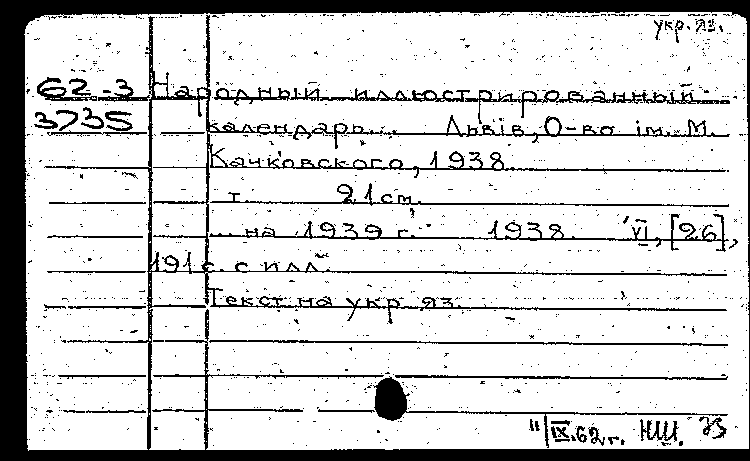 укр. яз.
62-3 Народный иллюстрированный
3735 календарь... Львів, О-во ім. М.
Качковского, 1938.
т. 21 см.
... на 1939 г. 1938. VI, [26],
191 с. с илл.
Текст на укр. яз.
11/IX.62 г. НШ.